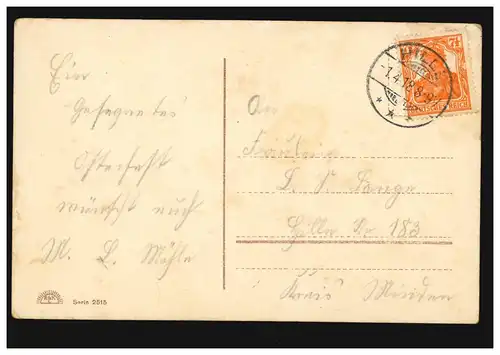 Ein
Gesegnetes
Osterfest
wünscht euch
M. L. Möhle
Serie 2515
An
Fräulein
L. S. Lange
Hille Nr 183
Kreis Minden
HILLE
-1.4.18.8-9
7½